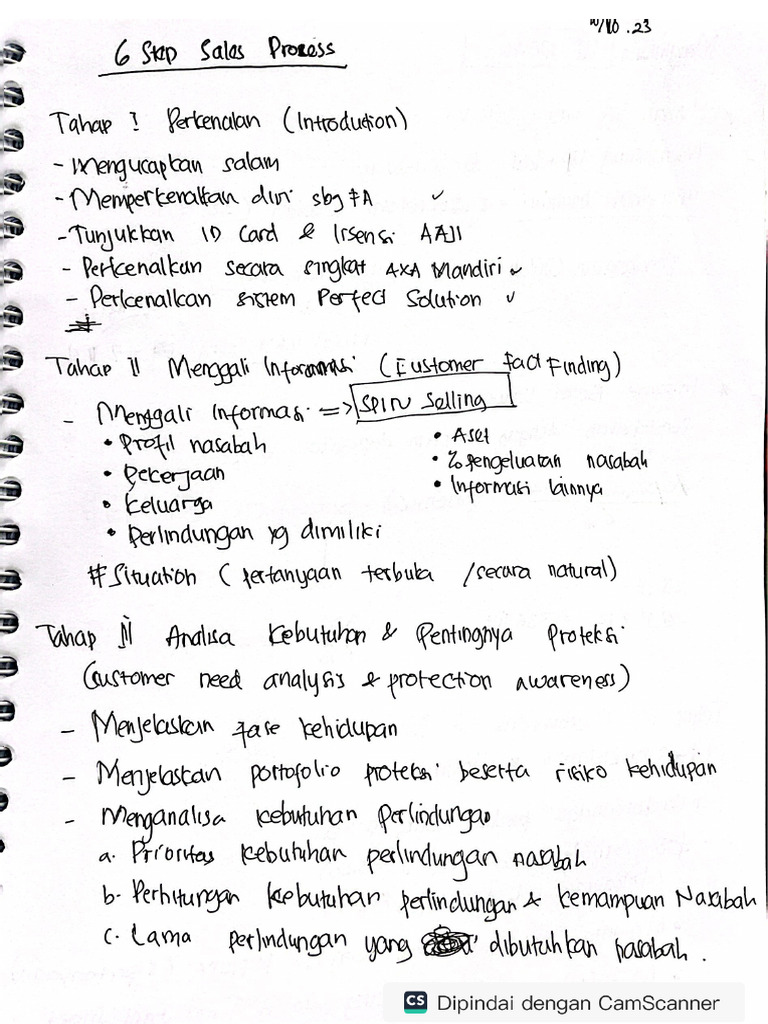 10/10.23
6 Step Sales Process
Tahap I Perkenalan (Introduction)
- Mengucapkan salam
- Memperkenalkan diri sbg FA ✓
- Tunjukkan ID Card & lisensi AAJI
- Perkenalkan secara singkat AXA Mandiri ✓
- Perkenalkan sistem Perfect Solution ✓
Tahap II Menggali Informasi (Customer Fact Finding)
- Menggali informasi => SPIN Selling
• Profil nasabah
• Pekerjaan
• Keluarga
• Perlindungan yg dimiliki
• Aset
• % pengeluaran nasabah
• Informasi lainnya
# Situation ( pertanyaan terbuka / secara natural)
Tahap III Analisa Kebutuhan & Pentingnya Proteksi
(Customer need analysis & protection awareness)
- Menjelaskan fase kehidupan
- Menjelaskan portofolio proteksi beserta risiko kehidupan
- Menganalisa kebutuhan perlindungan
a. Prioritas kebutuhan perlindungan nasabah
b. Perhitungan kebutuhan perlindungan & kemampuan Nasabah
c. Lama perlindungan yang dibutuhkan nasabah.
CS Dipindai dengan CamScanner